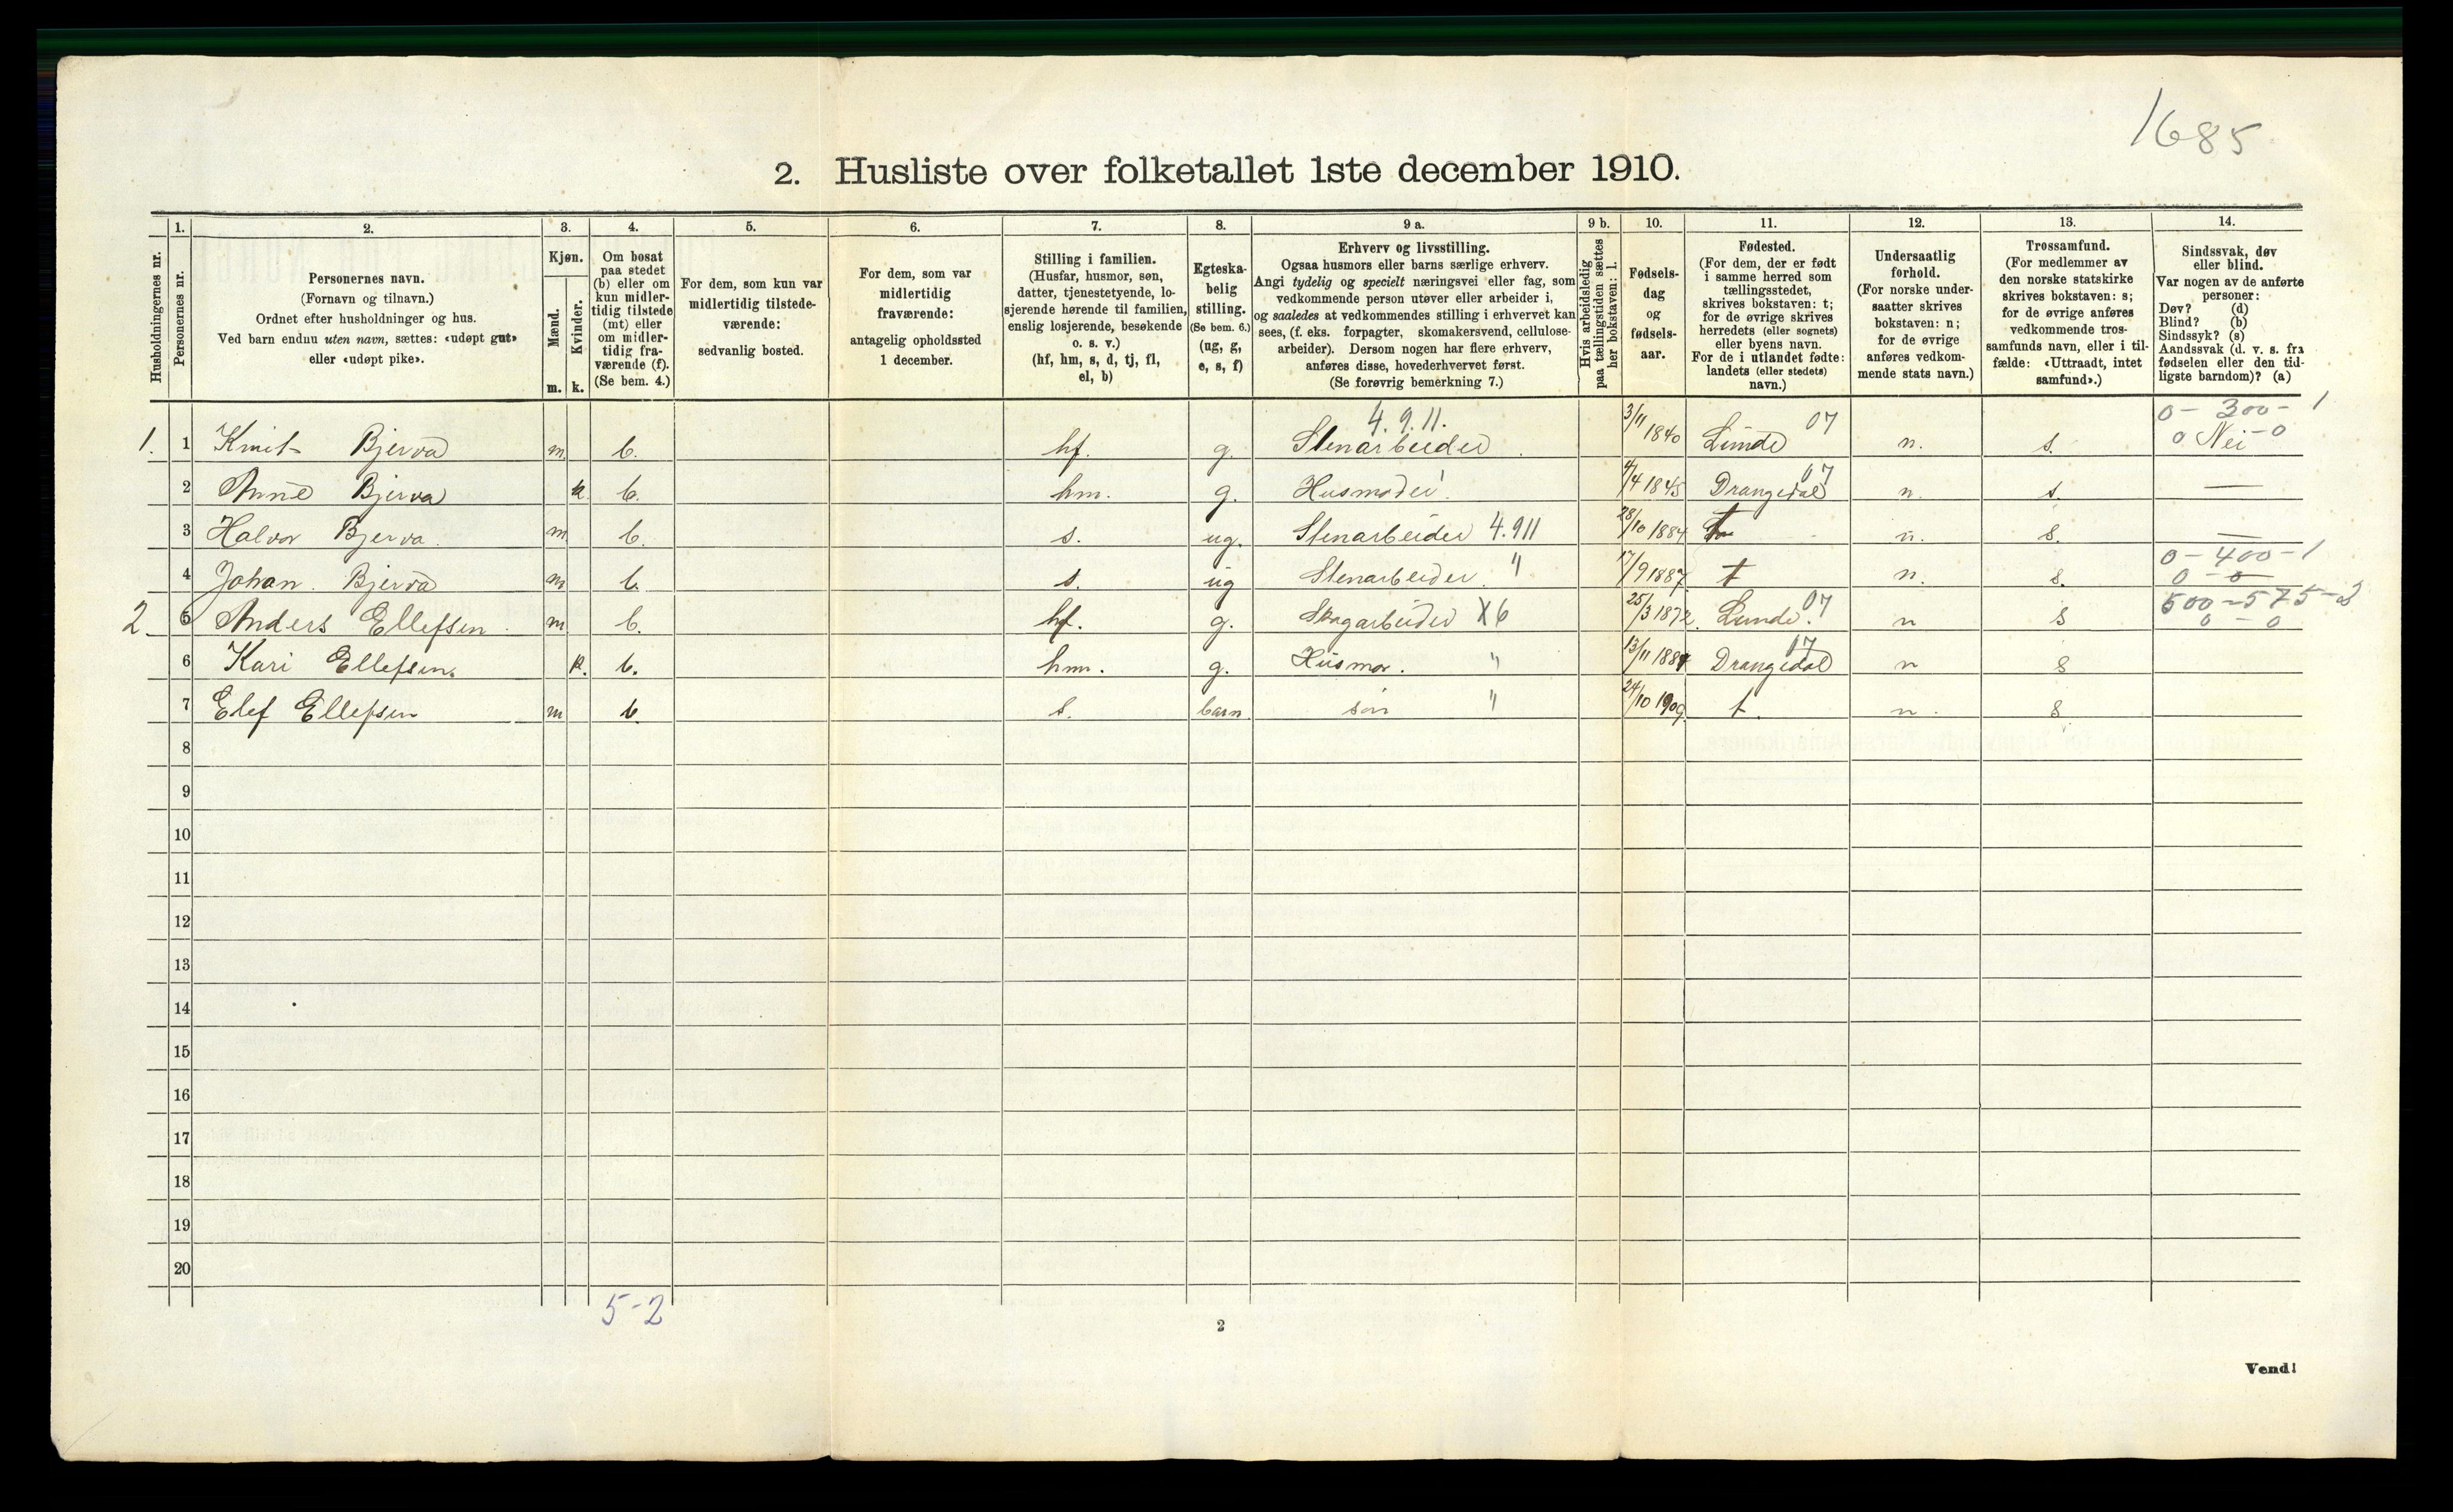 1685
2. Husliste over folketallet 1ste december 1910.
Husholdningernes nr.
1.
Personernes nr.
2.
Personernes navn.
(Fornavn og tilnavn.)
Ordnet efter husholdninger og hus.
Ved barn endnu uten navn, sættes: «udøpt gut»
eller «udøpt pike».
3.
Kjøn.
Mænd.
m.
Kvinder.
k.
4.
Om bosat
paa stedet
(b) eller om
kun midler-
tidig tilstede
(mt) eller
om midler-
tidig fra-
værende (f).
(Se bem. 4.)
5.
For dem, som kun var
midlertidig tilstede-
værende:
sedvanlig bosted.
6.
For dem, som var
midlertidig
fraværende:
antagelig opholdssted
1 december.
7.
Stilling i familien.
(Husfar, husmor, søn,
datter, tjenestetyende, lo-
sjerende hørende til familien,
enslig losjerende, besøkende
o. s. v.)
(hf, hm, s, d, tj, fl,
el, b)
8.
Egteska-
belig
stilling.
(Se bem. 6.)
(ug, g,
e, s, f)
9 a.
Erhverv og livsstilling.
Ogsaa husmors eller barns særlige erhverv.
Angi tydelig og specielt næringsvei eller fag, som
vedkommende person utøver eller arbeider i,
og saaledes at vedkommendes stilling i erhvervet kan
sees, (f. eks. forpagter, skomakersvend, cellulose-
arbeider). Dersom nogen har flere erhverv,
anføres disse, hovederhvervet først.
(Se forøvrig bemerkning 7.)
9 b.
Hvis arbeidsledig
paa tællingstiden sættes
her bokstaven: l.
10.
Fødsels-
dag
og
fødsels-
aar.
11.
Fødested.
(For dem, der er født
i samme herred som
tællingsstedet,
skrives bokstaven: t;
for de øvrige skrives
herredets (eller sognets)
eller byens navn.
For de i utlandet fødte:
landets (eller stedets)
navn.)
12.
Undersaatlig
forhold.
(For norske under-
saatter skrives
bokstaven: n;
for de øvrige
anføres vedkom-
mende stats navn.)
13.
Trossamfund.
(For medlemmer av
den norske statskirke
skrives bokstaven: s;
for de øvrige anføres
vedkommende tros-
samfunds navn, eller i til-
fælde: «Uttraadt, intet
samfund».)
14.
Sindssvak, døv
eller blind.
Var nogen av de anførte
personer:
Døv? (d)
Blind? (b)
Sindssyk? (s)
Aandssvak (d. v. s. fra
fødselen eller den tid-
ligste barndom)? (a)
4.9.11. 07 0 - 300 - 1
1. 1 Knut Bjerva m b. hf. g. Stenarbeider 3/11 1840 Lunde n. s. 0 Nei - 0
2 Anne Bjerva k b. hm. g. Husmoder 4/4 1845 Drangedal 07 n. s. —
3 Halvor Bjerva m b. s. ug. Stenarbeider 4.911 28/10 1884 t n. s. —
0 - 400 - 1
4 Johan Bjerva m b. s. ug Stenarbeider " 17/9 1887 t n. s. 0 - 0
2. 5 Anders Ellefsen m b. hf. g. Skogarbeider X6 25/3 1872. Lunde. 07 n s 500 - 575 - 2
0 - 0
6 Kari Ellefsen. k. b. hm. g. Husmor. " 13/11 1884 Drangedal 07 n s
7 Elef Ellefsen m b. s. barn søn " 24/10 1909 t. n. s
8
9
10
11
12
13
14
15
16
17
18
19
20
5-2
2
Vend!